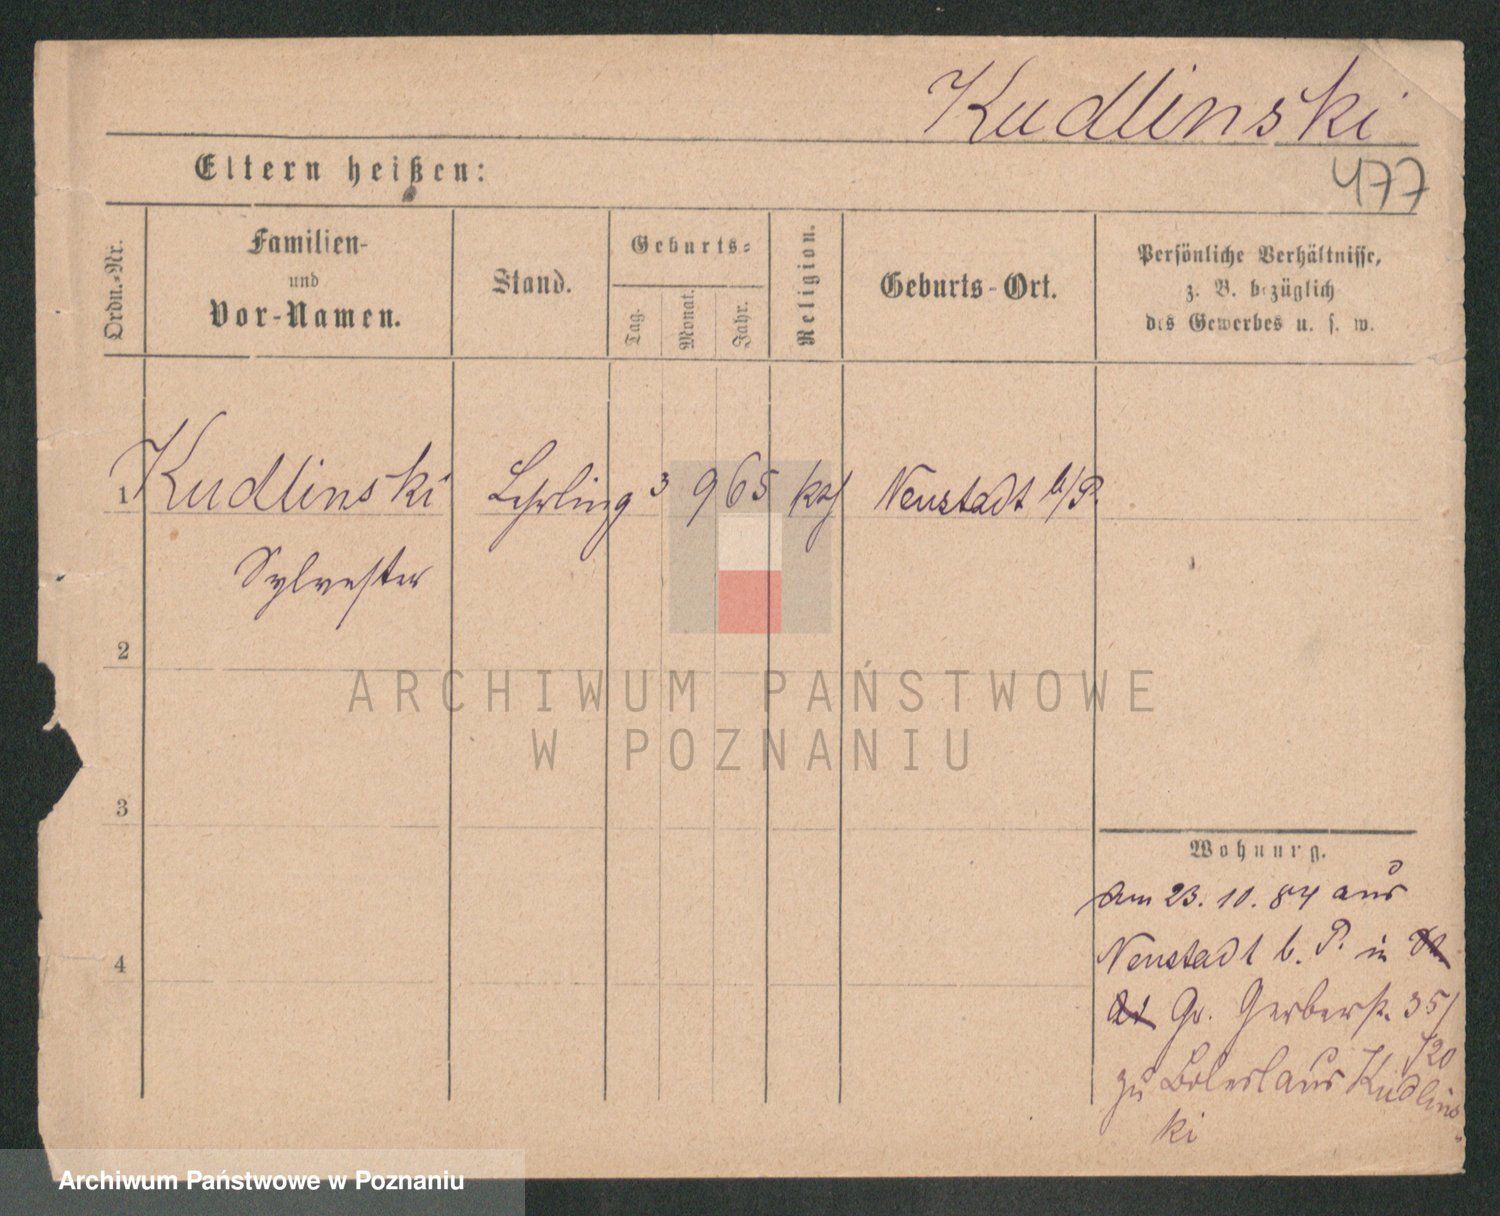 Kudlinski
Eltern heißen:
477
Ordn.-Nr.
Familien-
und
Vor-Namen.
Stand.
Geburts-
Tag.
Monat.
Jahr.
Religion.
Geburts-Ort.
Persönliche Verhältnisse,
z. B. bezüglich
des Gewerbes u. s. w.
1 Kudlinski Lehrling 3 9 65 kth Neustadt b/P.
Sylvester
2
ARCHIWUM PAŃSTWOWE
W POZNANIU
3
Wohnung.
Am 23. 10. 84 aus
Neustadt b. P. in
4
Gr. Gerberst. 35/
/20
zu Boleslaus Kudlins-
ki
Archiwum Państwowe w Poznaniu